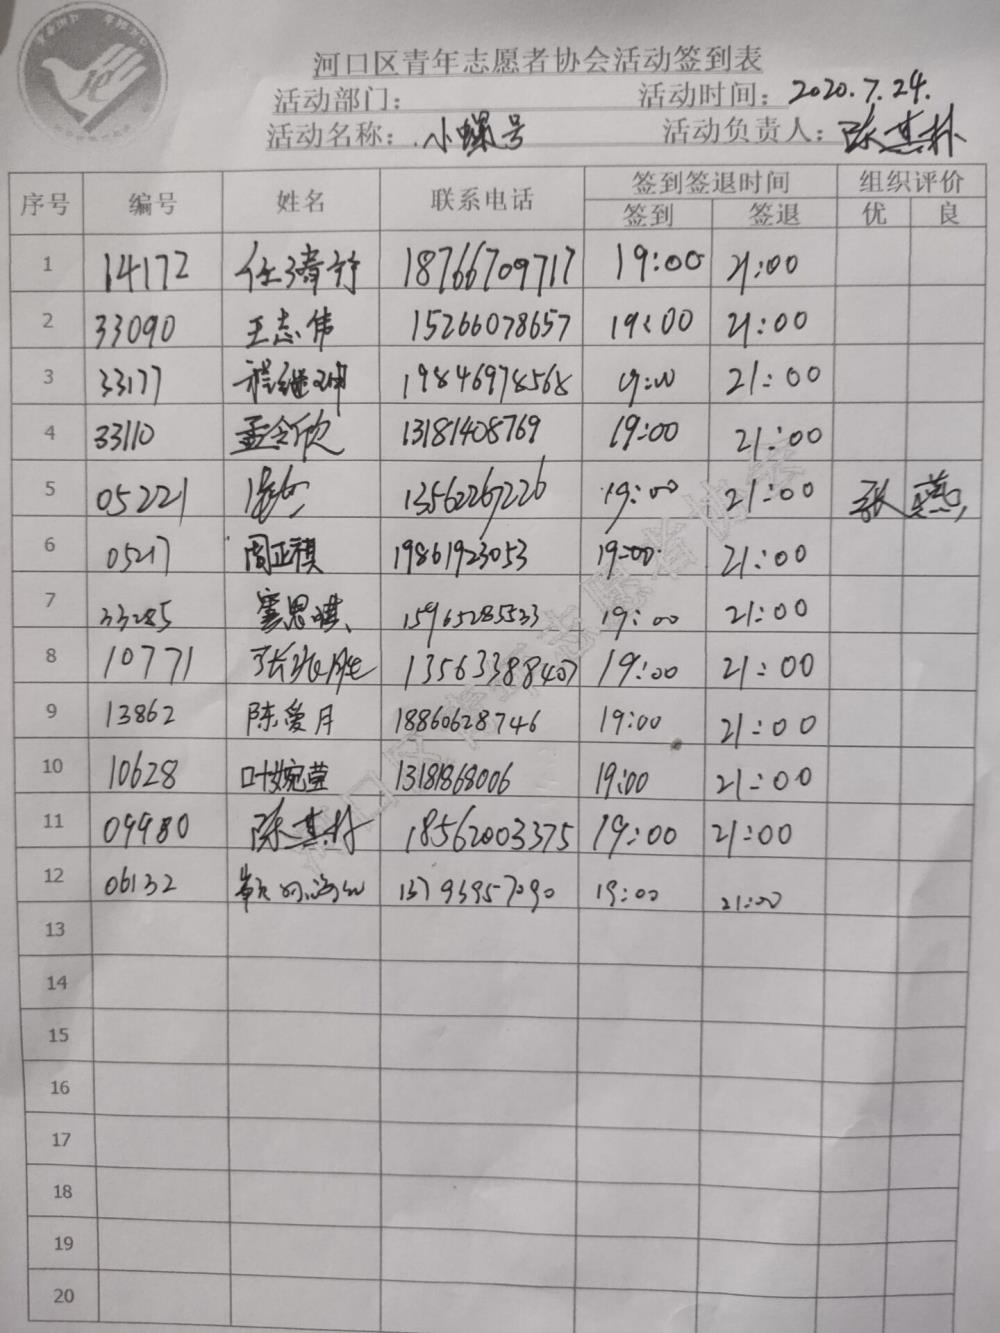 河口区青年志愿者协会活动签到表
活动部门： 活动时间：2020.7.24.
活动名称：小螺号 活动负责人：陈其朴
序号 编号 姓名 联系电话 签到签退时间 组织评价
签到 签退 优 良
1 14172 任 18766709717 19:00 21:00
2 33090 王志伟 15266078657 19:00 21:00
3 33177 程继坤 19846978568 19:00 21:00
4 33110 孟令欣 13181408769 19:00 21:00
5 05221 13562267226 19:00 21:00 张燕
6 05217 周正祺 19861923053 19:00 21:00
7 33285 思琪 15965285533 19:00 21:00
8 10771 张兆胜 13563388407 19:00 21:00
9 13862 陈爱月 18860628746 19:00 21:00
10 10628 叶婉莹 13181868006 19:00 21:00
11 09980 陈其朴 18562003375 19:00 21:00
12 06132 13793957090 19:00 21:00
13
14
15
16
17
18
19
20
河口区青年志愿者协会